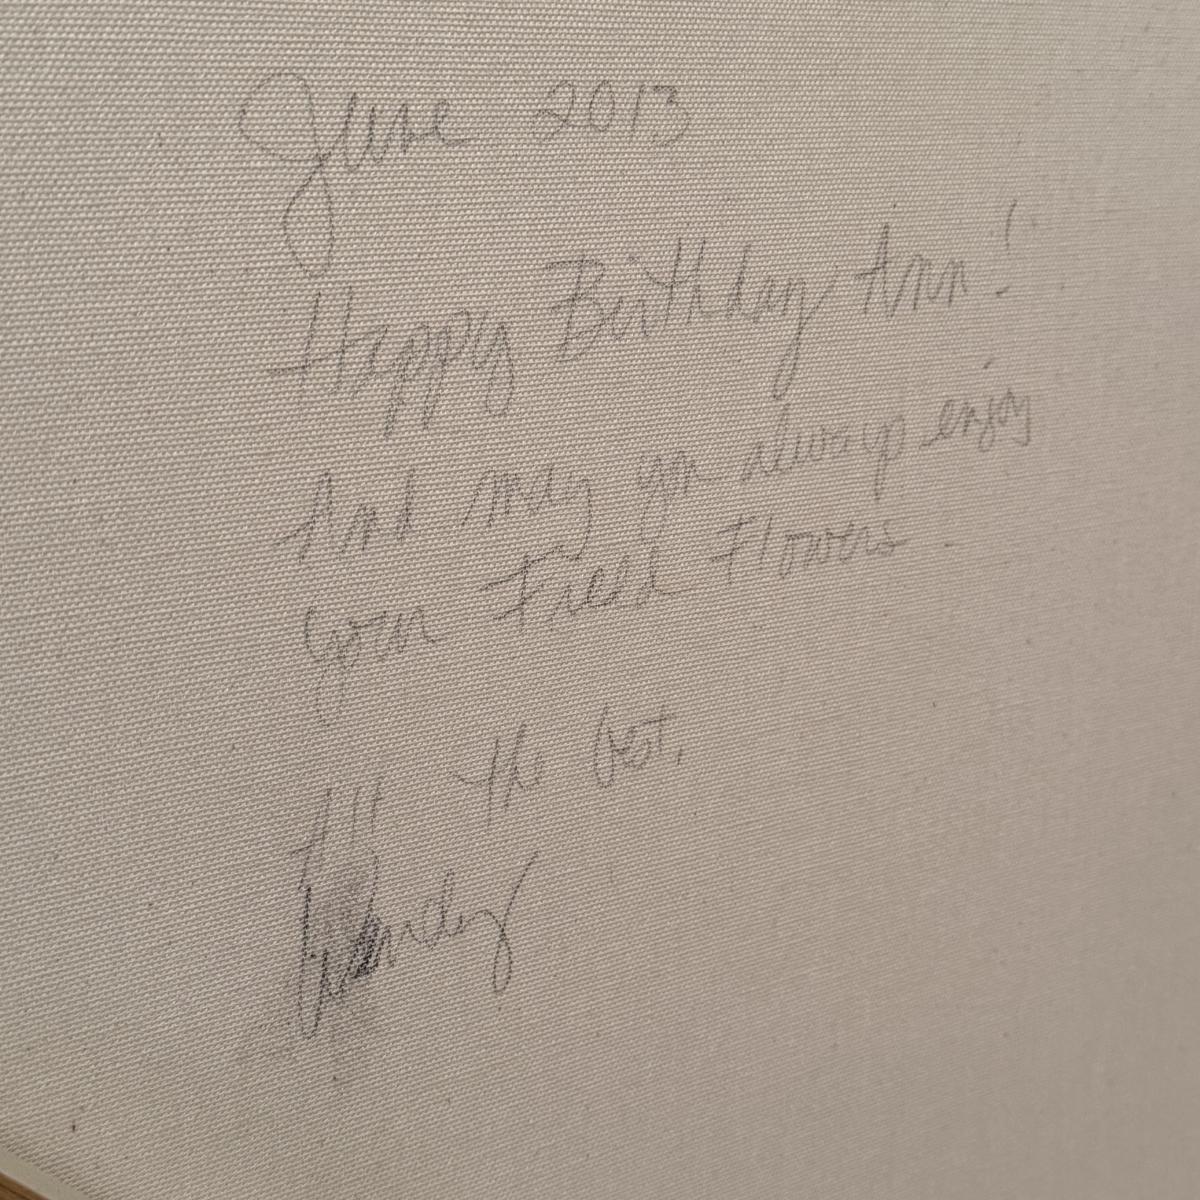 June 2013
Happy Birthday Ann!
And may you always enjoy
your Field Flowers.
All the best,